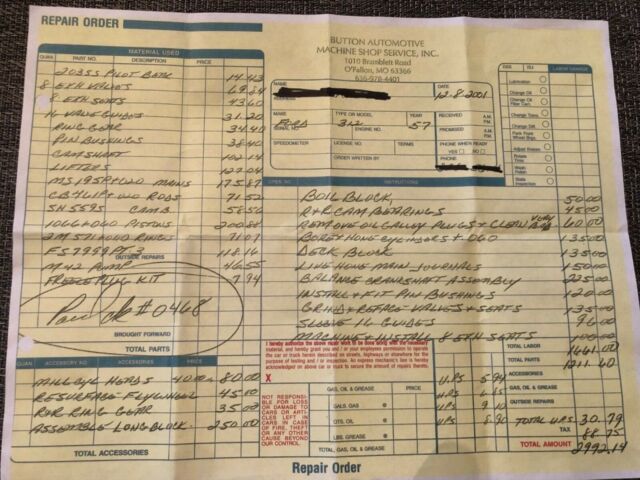 REPAIR ORDER
BUTTON AUTOMOTIVE
MACHINE SHOP SERVICE, INC.
1010 Bramblett Road
O'Fallon, MO 63366
636-978-4401
MATERIAL USED
QUAN. PART NO. DESCRIPTION PRICE
203SS PILOT BEAR 14.43
8 EXH VALVES 69.84
8 EXH SEATS 43.60
16 VALVE GUIDES 31.20
RING GEAR 34.40
PIN BUSHINGS 38.40
CAMSHAFT 102.14
LIFTERS 127.04
MS 195P+020 MAINS 175.87
CB 411P+020 RODS 71.52
SH 559S CAMB 58.56
1066+060 PISTONS 200.88
2M 571+060 RINGS 71.07
FS 7999 PT-3 118.16
OUTSIDE REPAIRS
M42 PUMP 46.55
FREEZE PLUG KIT 7.94
#0468
BROUGHT FORWARD
TOTAL PARTS
NAME
ADDRESS
DATE
12-8-2001
MAKE FORD
TYPE OR MODEL 312
YEAR 57
RECEIVED A.M. P.M.
SERIAL NO.
ENGINE NO.
PROMISED A.M. P.M.
SPEEDOMETER
LICENSE NO.
TERMS
PHONE WHEN READY
YES NO
ORDER WRITTEN BY
PHONE
LABOR CHARGE
Lubrication
Change Oil
Change Oil Filter Cart.
Change Trans.
Change Diff.
Pack Front Wheel Brgs.
Adjust Brakes
Rotate Tires
Wash Polish
State Inspection
OPER. NO. INSTRUCTIONS
BOIL BLOCK, 50.00
R+R CAM BEARINGS 45.00
REMOVE OIL GALLOY PLUGS + CLEAN VERY 60.00
BORE + HONE CYLINDERS + .060 135.00
DECK BLOCK 135.00
LINE HONE MAIN JOURNALS 150.00
BALANCE CRANKSHAFT ASSEMBLY 225.00
INSTALL + FIT PIN BUSHINGS 120.00
GRIND + REFACE VALVES + SEATS 135.00
SLEEVE 16 GUIDES 96.00
MACHINE + INSTALL 8 EXH SEATS 100.00
TOTAL LABOR 1661.00
TOTAL PARTS 1211.60
I hereby authorize the above repair work to be done along with the necessary material, and hereby grant you and / or your employees permission to operate the car or truck herein described on streets, highways or elsewhere for the purpose of testing and / or inspection. An express mechanic's lien is hereby acknowledged on above car or truck to secure the amount of repairs thereto.
X
QUAN. ACCESSORIES PRICE
MILL CYL HEADS 40.00 80.00
RESURFACE FLYWHEEL 45.00
R+R RING GEAR 35.00
ASSEMBLE LONGBLOCK 250.00
TOTAL ACCESSORIES
NOT RESPONSIBLE FOR LOSS OR DAMAGE TO CARS OR ARTICLES LEFT IN CARS IN CASE OF FIRE, THEFT OR ANY OTHER CAUSE BEYOND OUR CONTROL.
GAS, OIL & GREASE
GALS. GAS @
QTS. OIL @
LBS. GREASE @
TOTAL GAS, OIL & GREASE
UPS 5.94
UPS 6.65
UPS 9.10
UPS 8.90
ACCESSORIES
GAS, OIL & GREASE
OUTSIDE REPAIRS
TOTAL UPS 30.79
TAX 88.75
TOTAL AMOUNT 2992.14
Repair Order